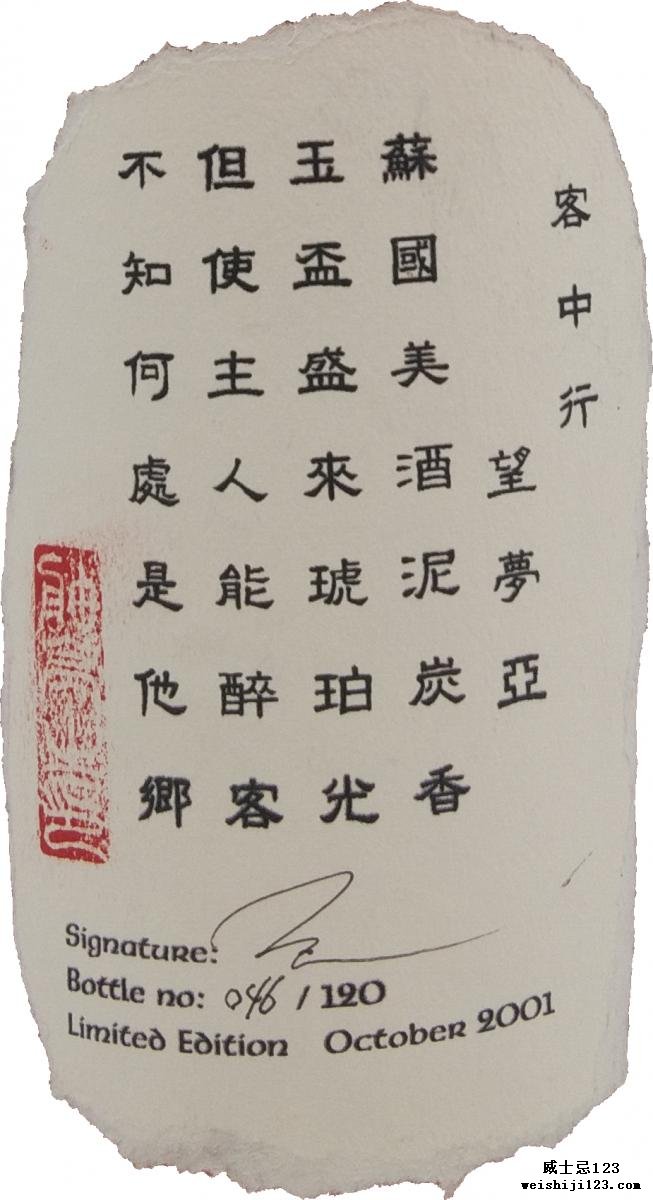 客中行
望夢亞
蘇國美酒泥炭香
玉盃盛來琥珀光
但使主人能醉客
不知何處是他鄉
Signature:
Bottle no: 046 / 120
Limited Edition October 2001
威士忌123
weishiji123.com